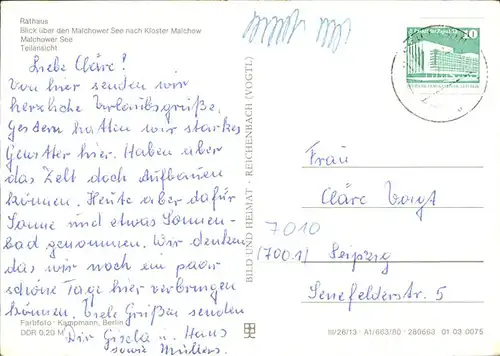 Rathaus
Blick über den Malchower See nach Kloster Malchow
Malchower See
Teilansicht
Liebe Cläre!
Von hier senden wir
herzliche Urlaubsgrüße.
Gestern hatten wir starkes
Gewitter hier. Haben aber
das Zelt doch Aufbauen
können. Heute aber dafür
Sonne und etwas Sonnen-
bad genommen. Wir denken
das wir noch ein paar
schöne Tage hier verbringen
können. Viele Grüßen senden
Dir Gisela u. Hans
sowie Müllers.
Farbfoto · Kampmann, Berlin
DDR 0,20 M
BILD UND HEIMAT · REICHENBACH (VOGTL)
10
Frau
Cläre Voigt
7010
(7001) Leipzig
Senefelderstr. 5
III/26/13 · A1/663/80 · 280663 01 03 0075